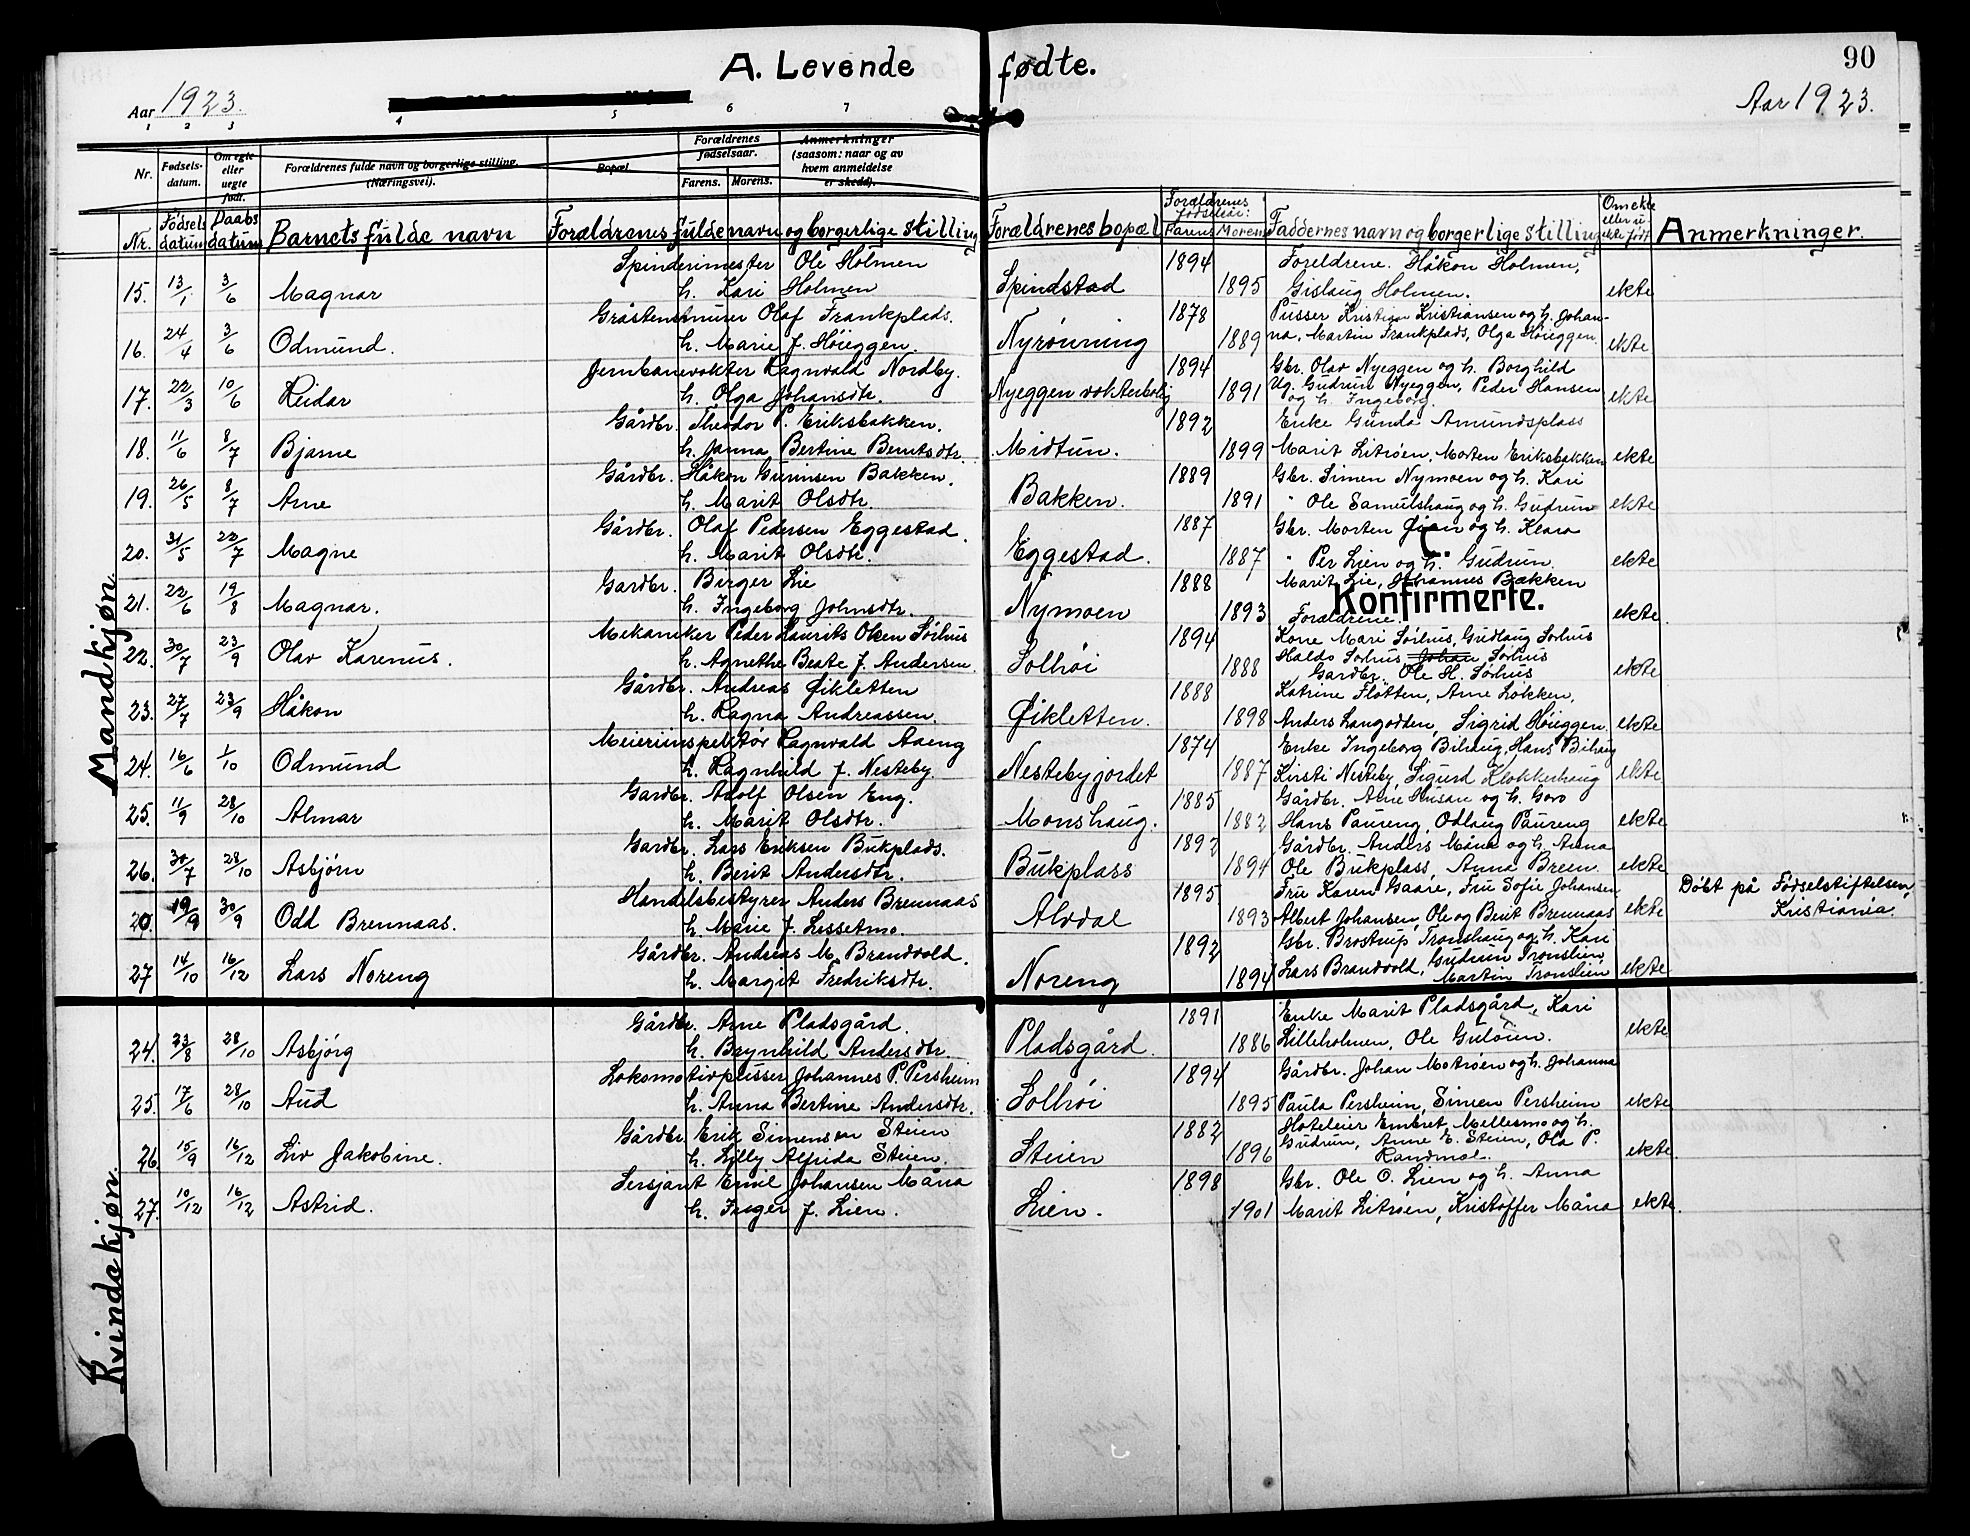 90
A. Levende fødte.
Aar 1923.
Aar 1923.
1 2 3 4 5 6 7
Nr. Fødsels-datum. Om egte eller uegte født. Forældrenes fulde navn og borgerlige stilling. (Næringsvei). Bopæl. Forældrenes fødselsaar. Farens. Morens. Anmerkninger (saasom: naar og av hvem anmeldelse er skedd).
Nr. Fødsels datum Daabs datum Barnets fulde navn Forældrenes fulde navn og borgerlige stilling Forældrenes bopæl Forældrenes fødselsaar: Farens Morens Faddernes navn og borgerlige stilling Om ekte eller u ekte født Anmerkninger.
Mandkjøn.
Spinderimester Ole Holmen 1894 Foreldrene. Håkon Holmen,
15. 13/1 3/6 Magnar h. Kari Holmen Spindstad 1895 Gislaug Holmen. ekte
Gråstensmurer Olaf Frankplads. 1878 Pusser Kristian Kristiansen og h. Johan-
16. 24/4 3/6 Odmund. h. Marie f. Høieggen. Nyrønning 1889 na, Martin Frankplads, Olga Høieggen. ekte
Jernbanevokter Ragnvald Nordby. 1894 Gbr. Olav Nyeggen og h. Borghild
17. 22/3 10/6 Reidar h. Olga Johansdtr. Nyeggen vokterbolig 1891 Ug. Gudrun Nyeggen, Peder Hansen ekte
og h. Ingeborg.
Gårdbr. Theodor P. Eriksbakken. 1892 Enke Gunda Amundsplass
18. 11/6 8/7 Bjarne h. Janna Bertine Berntsdtr. Midtun. 1899 Marit Litrøen, Morten Eriksbakken ekte
Gårdbr. Håkon Gurinsen Bakken. 1889 Gbr. Simen Nymoen og h. Kari
19. 26/5 8/7 Arne h. Marit Olsdtr. Bakken. 1891 " Ole Samuelshaug og h. Gudrun ekte
Gårdbr. Olaf Pedersen Eggestad. 1887 Gbr. Morten Øien og h. Klara
20. 31/5 22/7 Magne h. Marit Olsdtr. Eggestad. 1887 " Per Lien og h. Gudrun. ekte
C.
Gardbr. Birger Lie 1888 Marit Lie, Johannes Bækken
Konfirmerte.
21. 22/6 19/8 Magnar. h. Ingeborg Johnsdtr. Nymoen 1893 Forældrene. ekte
Mekaniker Peder Laurits Olsen Sørhus 1894 Kone Mari Sørhus, Gudlaug Sorhus
22. 30/7 23/9 Olav Karenus. h. Agnethe Beate f. Andersen. Solhøi 1888 Haldo Sorhus Johan Sørhus ekte
Gardbr. Ole H. Sørhus
Gårdbr. Andreas Øikletten 1888 Katrine Fløtten, Arne Løkken,
23. 27/7 23/9 Håkon h. Ragna Andreassen. Øikletten. 1898 Anders Langodden, Sigrid Høieggen. ekte
Meieriinspektør Ragnvald Aaeng 1874 Enke Ingeborg Bihaug, Hans Bihaug
24. 16/6 1/10 Odmund h. Ragnhild f. Nesteby Nestebyjordet 1887 Kirsti Nesteby, Sigurd Klokkerhaug ekte
Gardbr. Adolf Olsen Eng. 1885 Gårdbr. Arne Husan og h. Goro
25. 11/9 28/10 Almar h. Marit Olsdtr. Monshaug. 1882 Hans Paureng, Odlaug Paureng ekte
Gardbr. Lars Eriksen Bukplads. 1892 Gårdbr. Anders Måna og h. Anna
26. 30/7 28/10 Asbjørn h. Berit Andersdtr. Bukplass 1894 Ole Bukplass, Anna Breen. ekte
Handelsbestyrer Anders Brennaas 1895 Fru Karen Gaare, Fru Sofie Johansen Døbt på Fødselstiftelsen,
20. 19/9 30/9 Odd Brennaas. h. Marie f. Lessetmo. Alvdal 1893 Albert Johansen, Ole og Berit Brennaas ekte Kristiania.
Gårdbr. Andreas M. Brandvold. 1892 Gbr. Brostrup Tronshaug og h. Kari
27 14/10 16/12 Lars Noreng h. Margit Fredriksdtr. Noreng 1894 Lars Brandvold, Gudrun Tronslien, ekte
Martin Tronslien
Kvindekjøn.
Gårdbr. Arne Pladsgård. 1891 Enke Marit Pladsgård, Kari
24. 23/8 28/10 Asbjørg h. Brynhild Andersdtr. Pladsgård. 1886 Lilleholmen, Ole Guløien. ekte
Lokomotivpusser Johannes P. Persheim 1894 Gårdbr. Johan Motrøen og h. Johanna
25. 17/6 28/10 Aud h. Anna Bertine Andersdtr. Solhøi 1895 Paula Persheim, Simen Persheim ekte
Gårdbr Erik Simensen Steien 1882 Hoteleier Embret Mellesmo og h.
26. 15/9 16/12 Liv Jakobine. h. Lilly Alfrida Steien. Steien 1896 Gudrun, Anne E. Steien, Ola P. ekte.
Randmæl.
Sersjant Emil Johansen Måna 1898 Gbr. Ole O. Lien og h. Anna
27. 10/12 16/12 Astrid. h. Inger f. Lien. Lien. 1901 Marit Litrøen, Kristoffer Måna ekte.